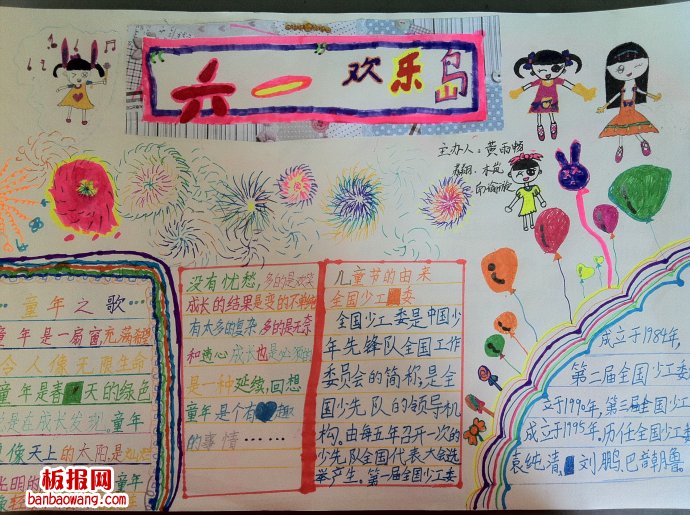 六一欢乐岛
主办人：黄雨畅
童年之歌…
童年是一扇窗,充满
合人像无限生命
童年是春天的绿色
是在成长发现。童年
像天上的太阳是灿烂
长明的
童年
没有忧愁,多的是欢笑
成长的结果是变的不
有太多的复杂,多的是无奈
和违心 成长也是必
是一种延续,回想
童年是个有趣
的事情……
儿童节的由来
全国少工委
全国少工委是中国少
年先锋队全国工作
委员会的简称,是全
国少先队的领导机
构。由每五年召开一次的
少先队全国代表大会选
举产生。第一届全国少工委
成立于1984年,
第二届全国少工委
立于1990年,第三届全国少工
成立于1995年.历任全国少工委
袁纯清、刘鹏、巴音朝鲁。
板报网
banbaowang.com